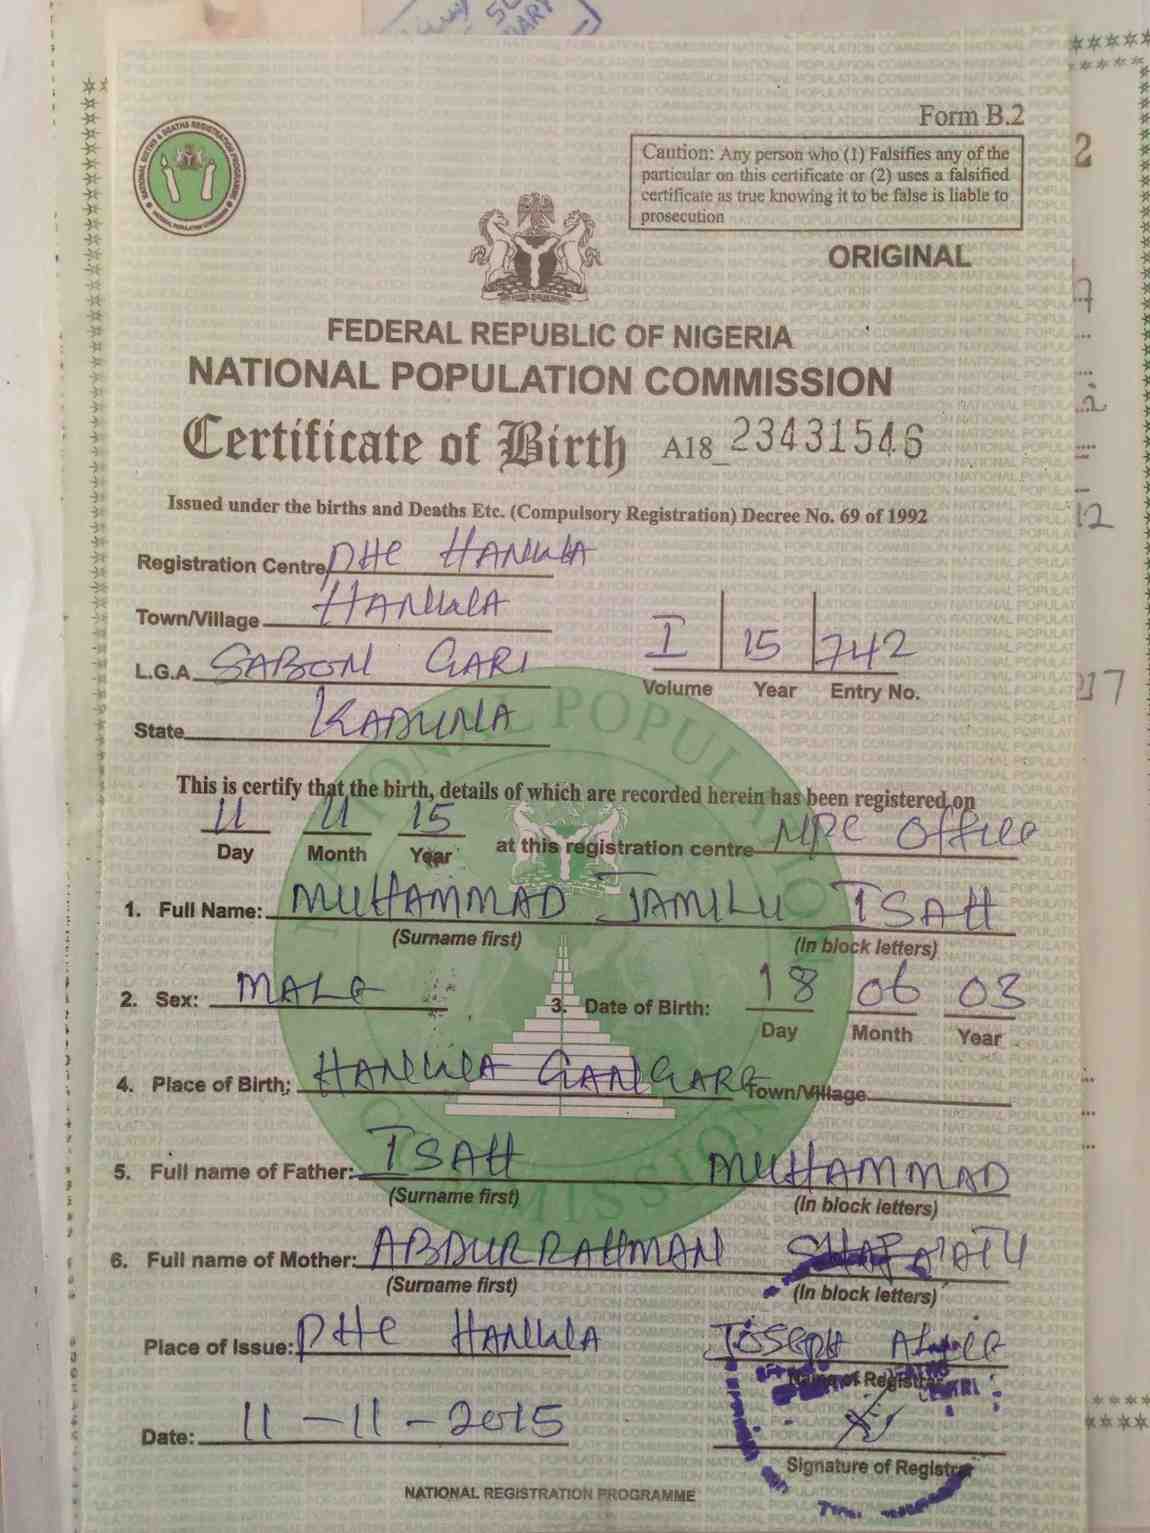 Form B.2
NATIONAL BIRTHS & DEATHS REGISTRATION PROGRAMME
Caution: Any person who (1) Falsifies any of the
particular on this certificate or (2) uses a falsified
certificate as true knowing it to be false is liable to
prosecution
ORIGINAL
FEDERAL REPUBLIC OF NIGERIA
NATIONAL POPULATION COMMISSION
Certificate of Birth A18_23431546
Issued under the births and Deaths Etc. (Compulsory Registration) Decree No. 69 of 1992
Registration Centre PHC HANWA
Town/Village HANWA
L.G.A. SABON GARI
I 15 742
Volume Year Entry No.
State KADUNA
This is certify that the birth, details of which are recorded herein has been registered on
11 11 15 at this registration centre NPC Office
Day Month Year
1. Full Name: MUHAMMAD JAMILU ISAH
(Surname first) (In block letters)
2. Sex: MALE 3. Date of Birth: 18 06 03
Day Month Year
4. Place of Birth: HANWA GANGARE Town/Village
5. Full name of Father: ISAH MUHAMMAD
(Surname first) (In block letters)
6. Full name of Mother: ABDURRAHMAN SHAFA'ATU
(Surname first) (In block letters)
Place of Issue: PHC HANWA JOSEPH
Name of Registrar
Date: 11-11-2015
Signature of Registrar
NATIONAL REGISTRATION PROGRAMME